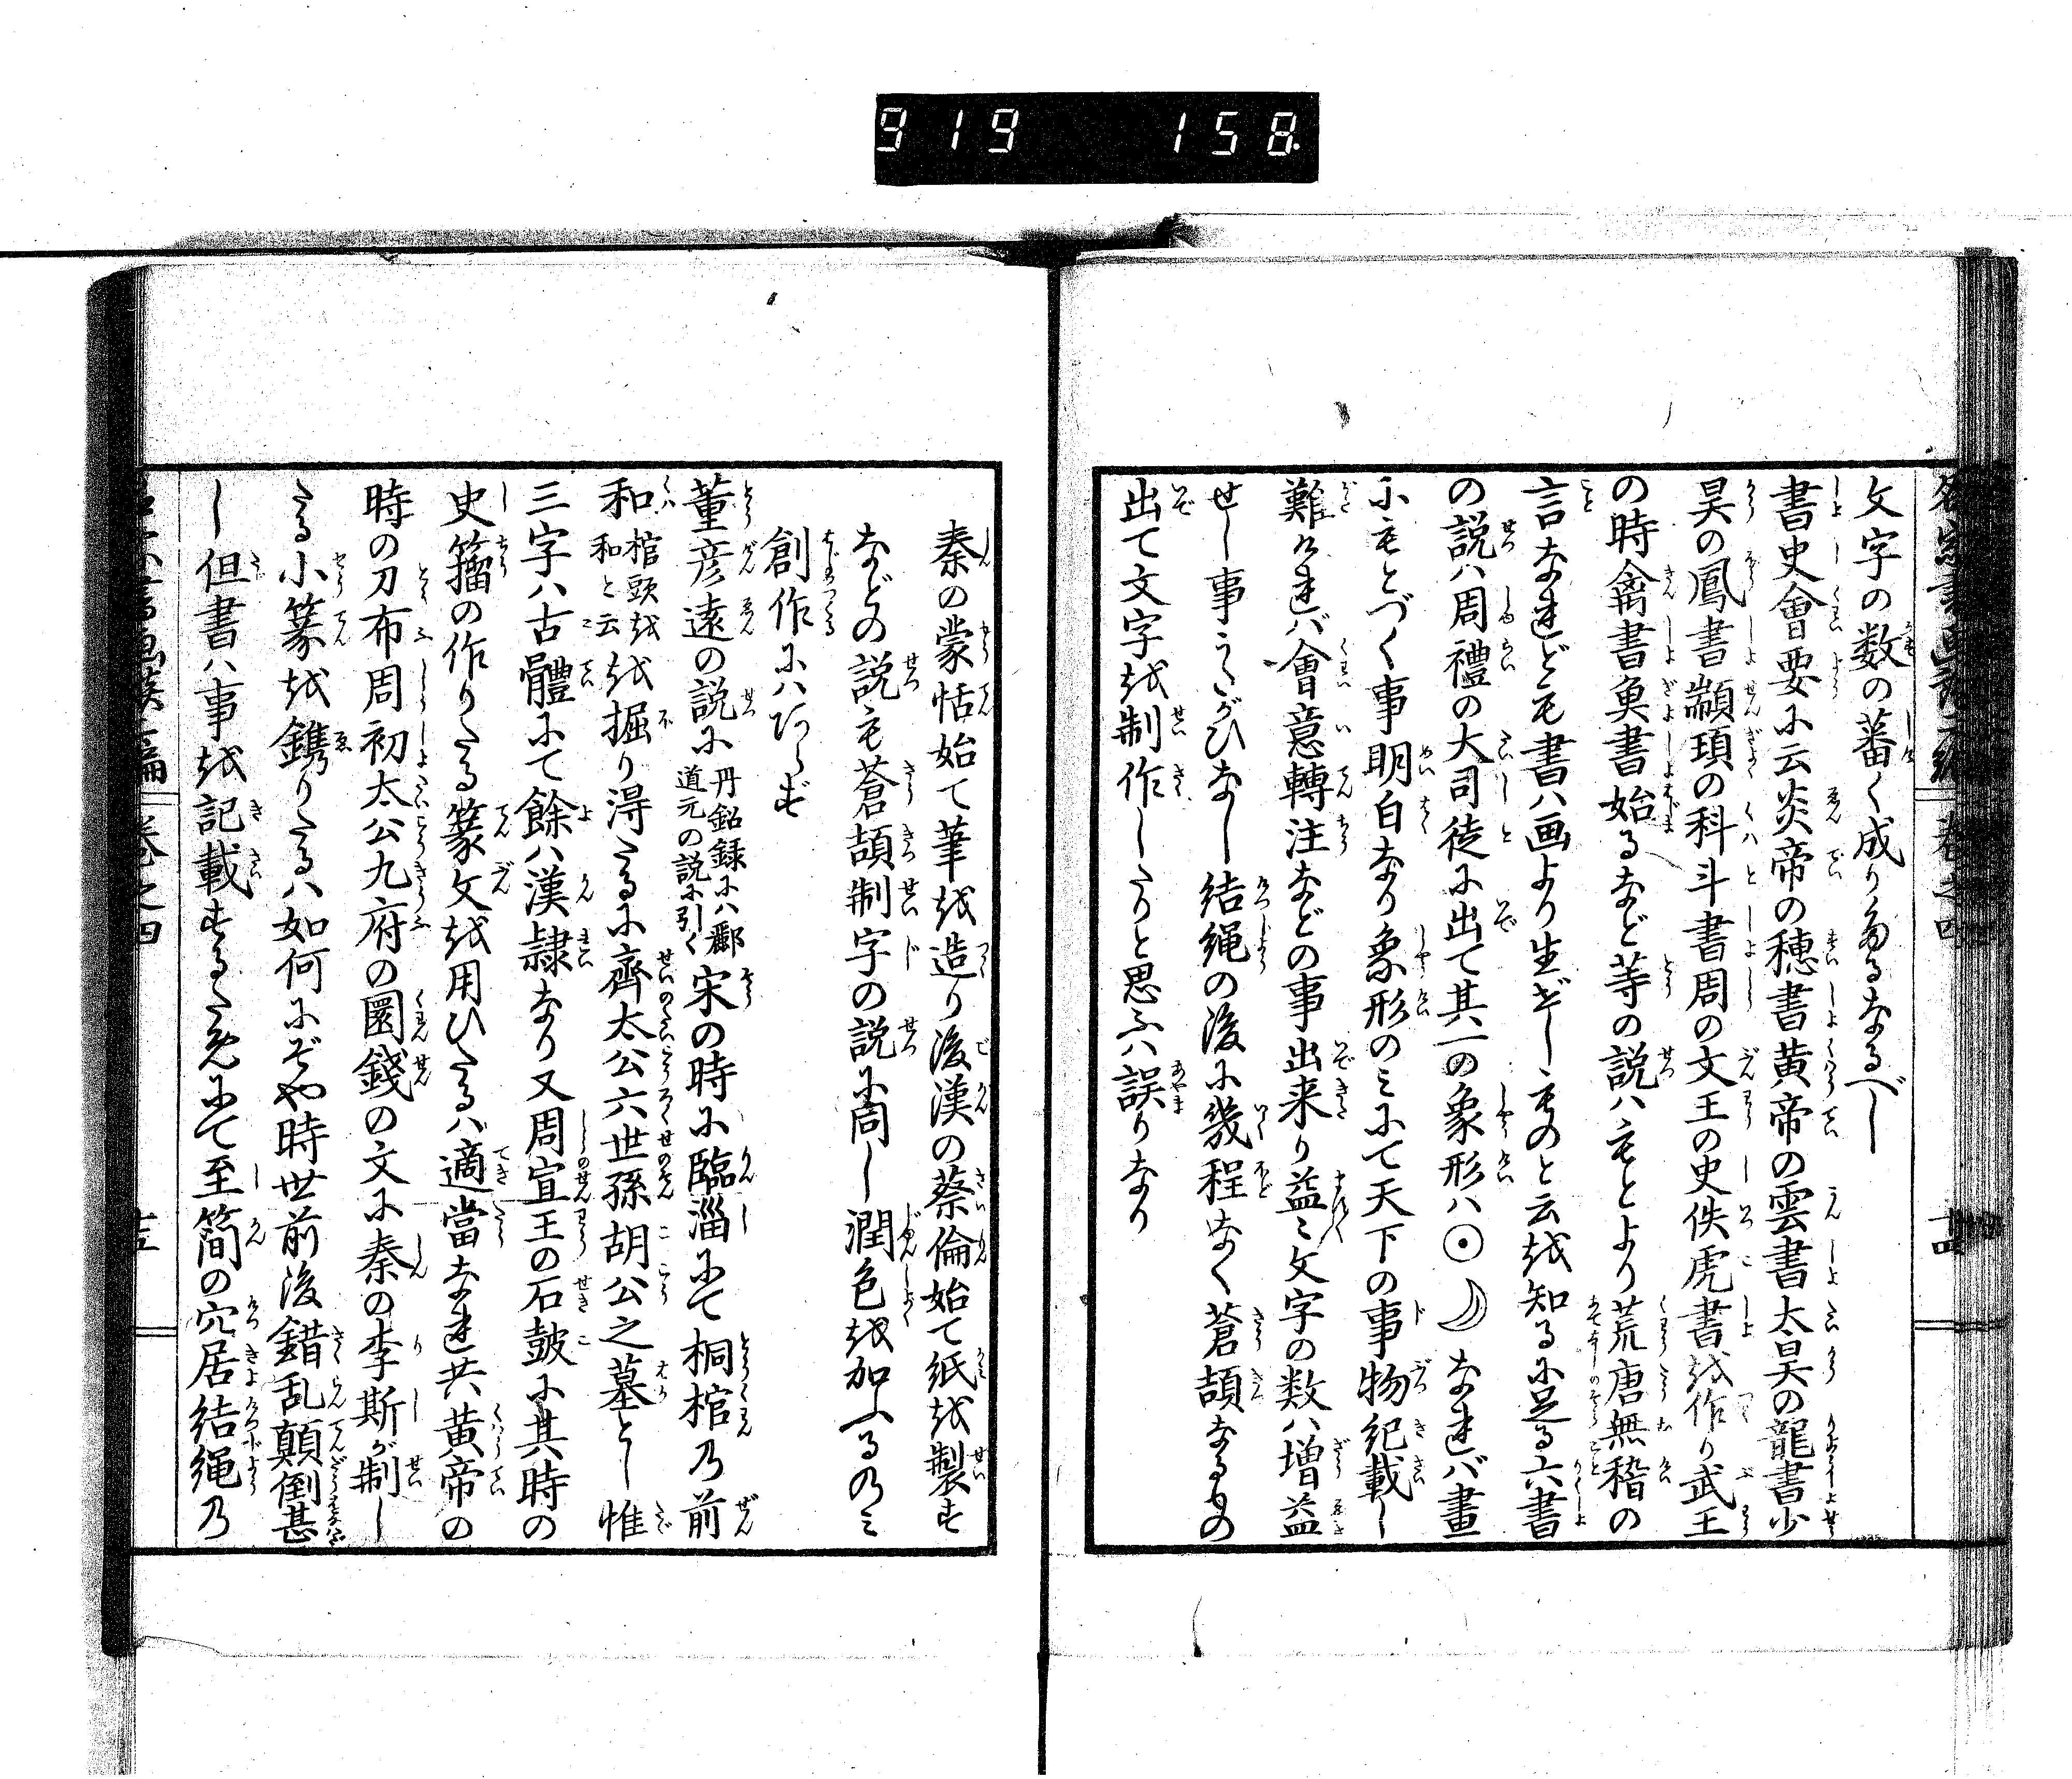 919 158
文字の数の蕃く成りたるなるべし
書史會要に云炎帝の穂書黄帝の雲書太昊の龍書少
昊の鳳書顓頊の科斗書周の文王の史佚虎書を作り武王
の時禽書魚書始るなど等の説ハもとより荒唐無稽の
言なれども書ハ画より生ぜしものと云を知るに足る六書
の説ハ周禮の大司徒に出て其一の象形ハ☉☽なれバ畫
にもとづく事明白なり象形のミにて天下の事物紀載し
難けれバ會意轉注などの事出来り益〻文字の数ハ増益
せし事うたがひなし結縄の後に幾程なく蒼頡なるもの
出て文字を制作したりと思ふハ誤りなり
秦の蒙恬始て筆を造り後漢の蔡倫始て紙を製す
などの説も蒼頡制字の説に同し潤色を加ふるのミ
創作にハあらず
董彦遠の説に丹鉛録にハ酈道元の説に引く宋の時に臨淄にて桐棺乃前
和棺頭を和と云を掘り得たるに齊太公六世孫胡公之墓とし惟
三字ハ古體にて餘ハ漢隷なり又周宣王の石鼓に其時の
史籀の作りたる篆文を用ひたるハ適當なれ共黄帝の
時の刀布周初太公九府の圜錢の文に秦の李斯が制し
たる小篆を鐫りたるハ如何にぞや時世前後錯乱顛倒甚
し但書ハ事を記載するためにて至簡の穴居結縄乃
巻之四